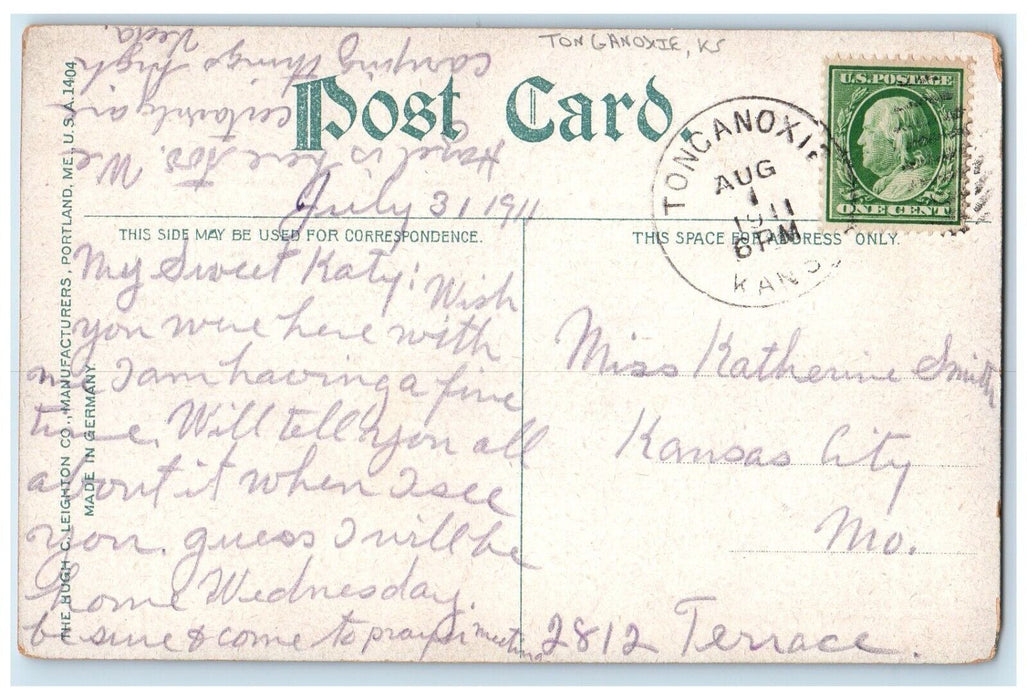 TONGANOXIE, KS
Post Card.
U.S. POSTAGE
ONE CENT
TONGANOXIE
AUG
1
1911
6 PM
KANS
THIS SIDE MAY BE USED FOR CORRESPONDENCE.
THIS SPACE FOR ADDRESS ONLY.
THE HUGH C. LEIGHTON CO., MANUFACTURERS, PORTLAND, ME., U.S.A. 1404
MADE IN GERMANY
July 31 1911
My Sweet Katy: Wish
you were here with
me I am having a fine
time. Will tell you all
about it when I see
you. guess I will be
home Wednesday.
be sure & come to prayer meeting
Hazel is here too. We
certainly are
carrying things high
Veda.
Miss Katherine Smith
Kansas City
Mo.
2812 Terrace.